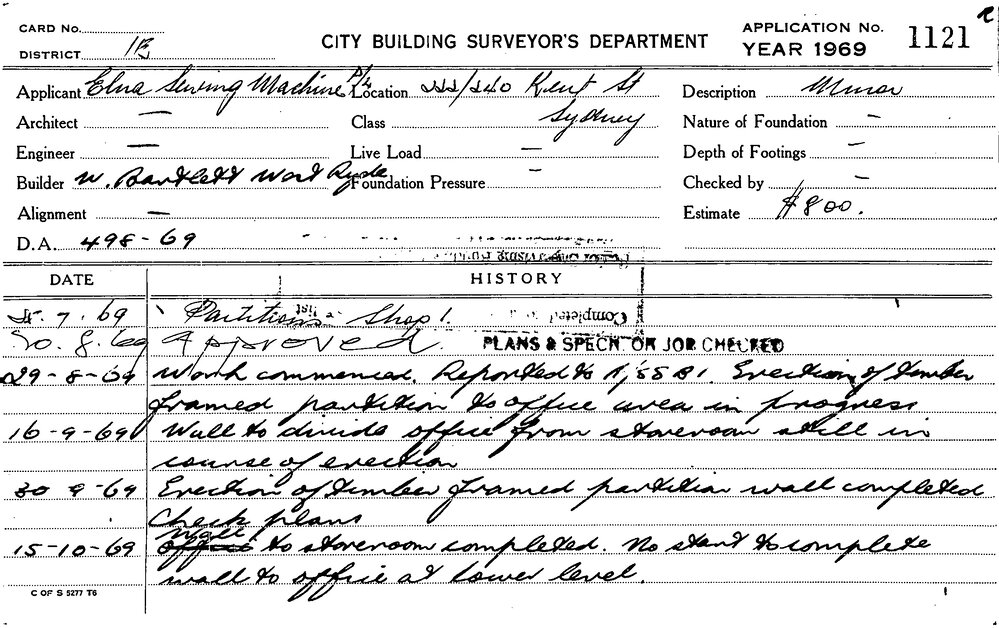 R
CARD NO.
DISTRICT 1B
CITY BUILDING SURVEYOR'S DEPARTMENT
APPLICATION NO. 1121
YEAR 1969
Applicant Elna Sewing Machine P/L Location Kent St Description Minor
Architect — Class Sydney Nature of Foundation —
Engineer — Live Load — Depth of Footings —
Builder W. Bartlett West Ryde Foundation Pressure — Checked by —
Alignment — Estimate $800.
D.A. 498-69
DATE HISTORY
7.69 Partitions Shop 1. Completed list
8.69 Approved. PLANS & SPECN. ON JOB CHECKED
29-8-69 Work commenced. Reported to Erection of timber
framed partition to office area in progress
16-9-69 Wall to divide office from storeroom still in
course of erection
30 9-69 Erection of timber framed partition wall completed
Check plans
Wall
15-10-69 office to storeroom completed. No start to complete
wall to office at lower level.
C OF S 5277 T6